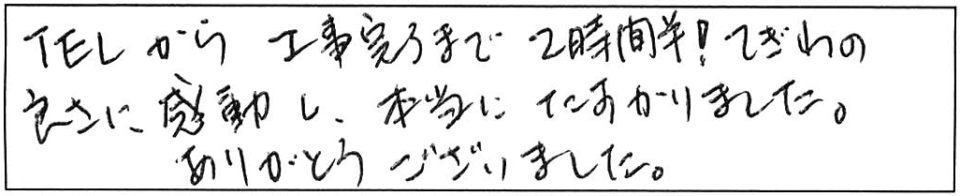 TELから 工事完了まで 2時間半!てぎわの
良さに感動し、本当に たすかりました。
ありがとう ございました。